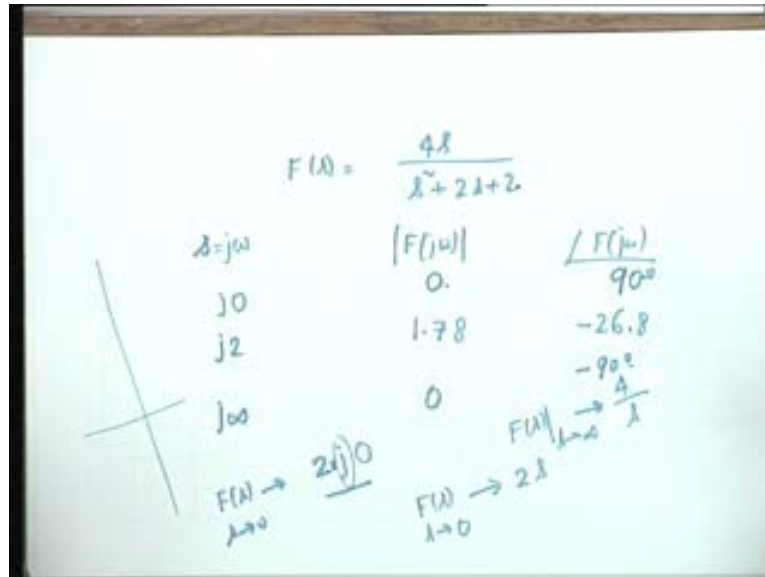 F(s) = 4s / s²+2s+2
s=jω |F(jω)| ∠F(jω)
j0 0. 90°
j2 1.78 -26.8
j∞ 0 -90°
F(s)|s→∞ → 4/s
F(s) → 2(j)0
s→0
F(s) → 2s
s→0